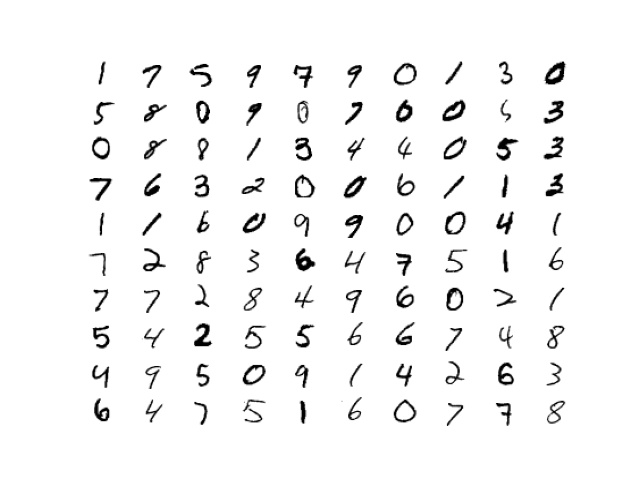 1 7 5 9 7 9 0 1 3 0
5 8 0 9 0 7 0 0 5 3
0 8 8 1 3 4 4 0 5 3
7 6 3 2 0 0 6 1 1 3
1 1 6 0 9 9 0 0 4 1
7 2 8 3 6 4 7 5 1 6
7 7 2 8 4 9 6 0 2 1
5 4 2 5 5 6 6 7 4 8
4 9 5 0 9 1 4 2 6 3
6 4 7 5 1 6 0 7 7 8